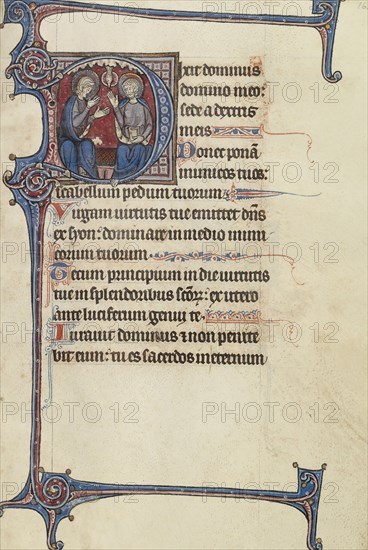 Dixit dominus
domino meo:
sede a dextris
meis
Donec ponā
inimicos tuos:
scabellum pedum tuorum
Virgam virtutis tue emittet dn̄s
ex syon: dominare in medio inimi
corum tuorum
Tecum principium in die virtutis
tue in splendoribus sctōꝝ: ex utero
ante luciferum genui te
Iuravit dominus ⁊ non penite
bit eum: tu es sacerdos in eternum
PHOTO 12